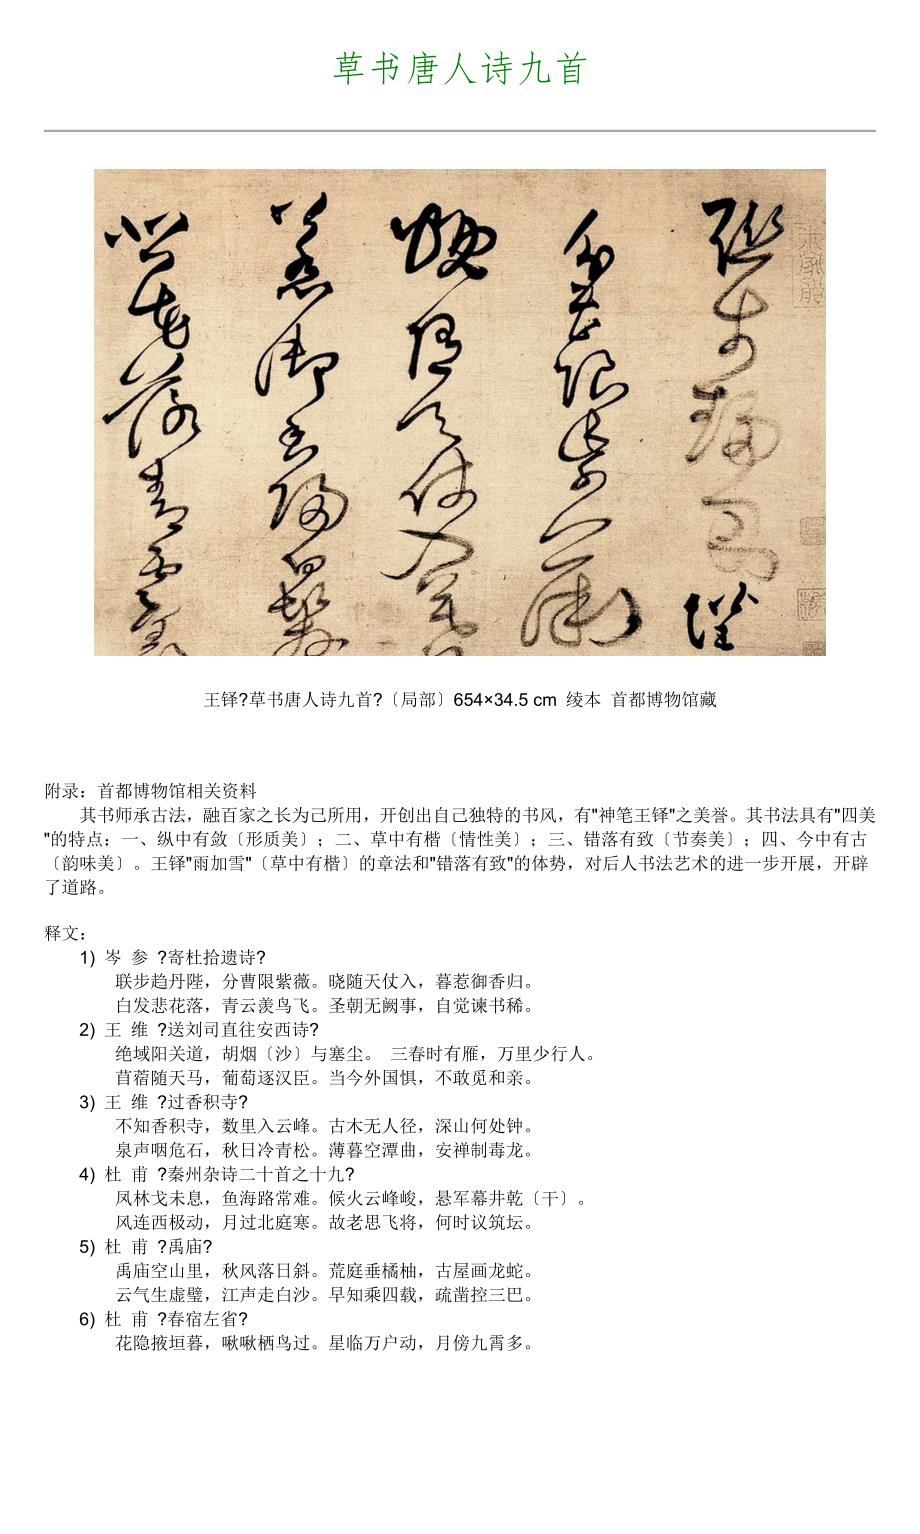 草书唐人诗九首
聯步趨丹陛
分曹限紫薇
曉隨天仗入暮
惹御香歸白髮
悲花落青雲羡
王铎?草书唐人诗九首?〔局部〕654×34.5 cm 绫本 首都博物馆藏
附录：首都博物馆相关资料
其书师承古法，融百家之长为己所用，开创出自己独特的书风，有"神笔王铎"之美誉。其书法具有"四美
"的特点：一、纵中有敛〔形质美〕；二、草中有楷〔情性美〕；三、错落有致〔节奏美〕；四、今中有古
〔韵味美〕。王铎"雨加雪"〔草中有楷〕的章法和"错落有致"的体势，对后人书法艺术的进一步开展，开辟
了道路。
释文：
1) 岑 参 ?寄杜拾遗诗?
联步趋丹陛，分曹限紫薇。晓随天仗入，暮惹御香归。
白发悲花落，青云羡鸟飞。圣朝无阙事，自觉谏书稀。
2) 王 维 ?送刘司直往安西诗?
绝域阳关道，胡烟〔沙〕与塞尘。 三春时有雁，万里少行人。
苜蓿随天马，葡萄逐汉臣。当今外国惧，不敢觅和亲。
3) 王 维 ?过香积寺?
不知香积寺，数里入云峰。古木无人径，深山何处钟。
泉声咽危石，秋日冷青松。薄暮空潭曲，安禅制毒龙。
4) 杜 甫 ?秦州杂诗二十首之十九?
凤林戈未息，鱼海路常难。候火云峰峻，悬军幕井乾〔干〕。
风连西极动，月过北庭寒。故老思飞将，何时议筑坛。
5) 杜 甫 ?禹庙?
禹庙空山里，秋风落日斜。荒庭垂橘柚，古屋画龙蛇。
云气生虚壁，江声走白沙。早知乘四载，疏凿控三巴。
6) 杜 甫 ?春宿左省?
花隐掖垣暮，啾啾栖鸟过。星临万户动，月傍九霄多。